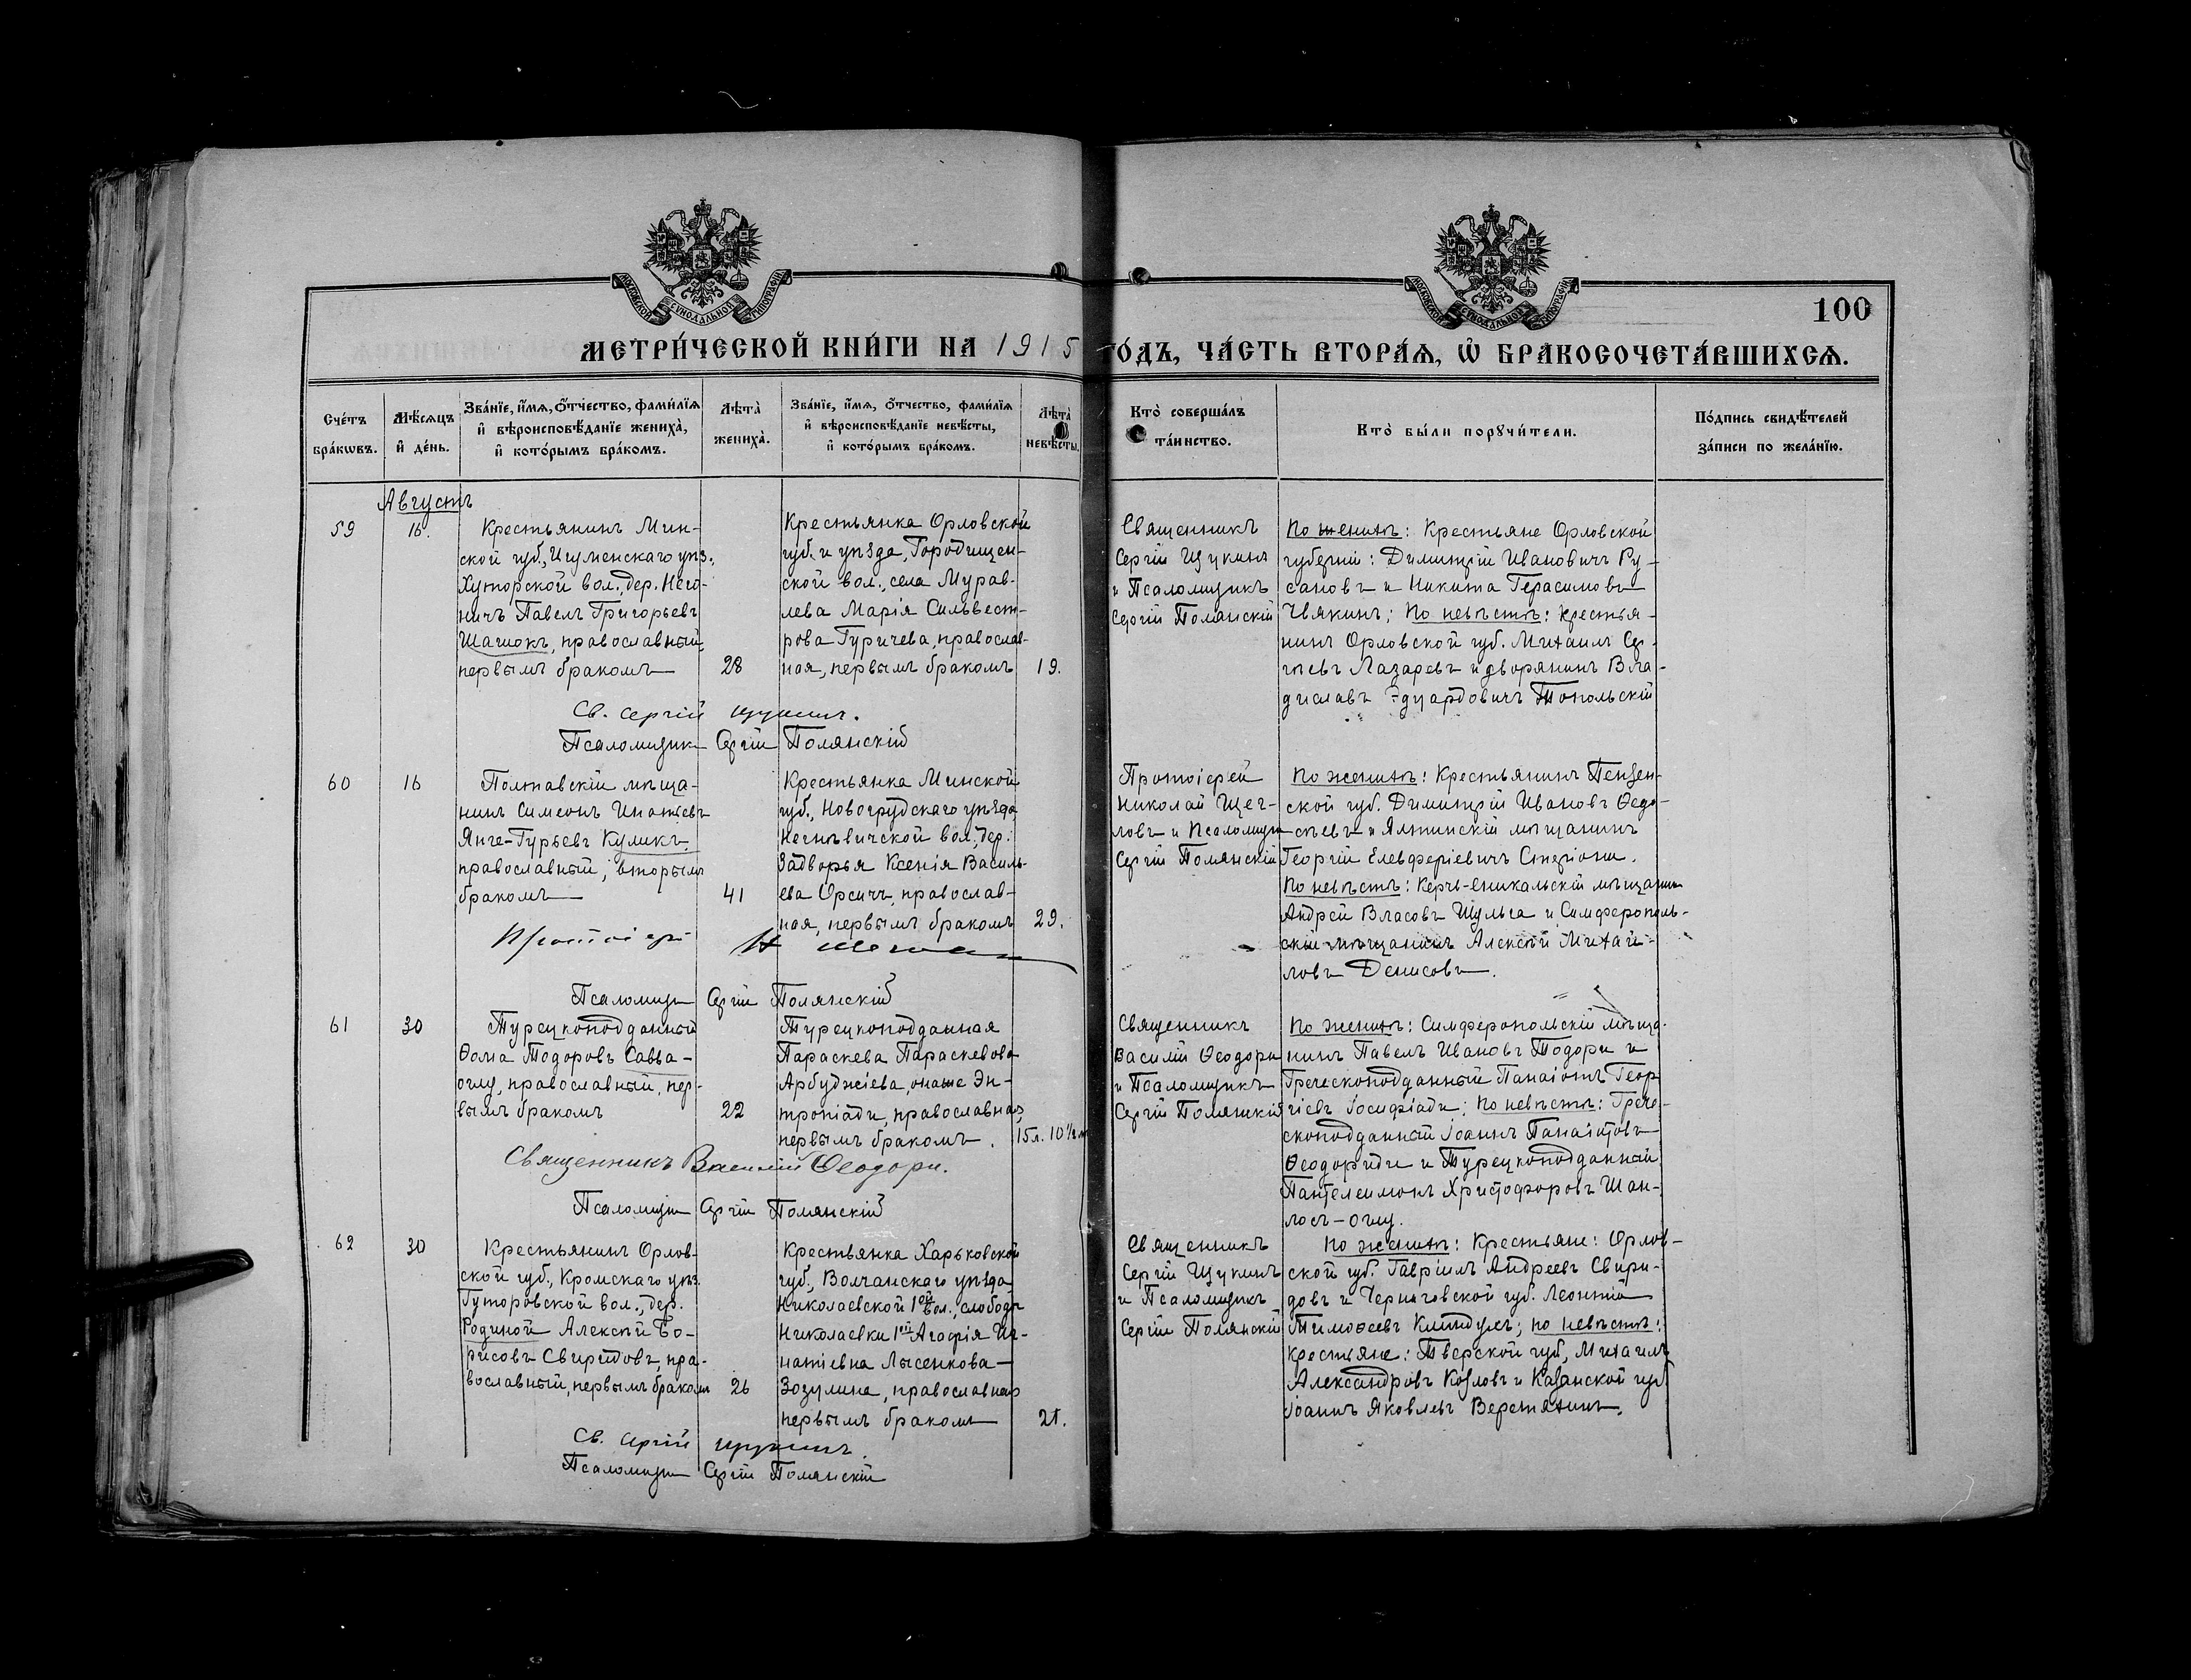 МОСКОВСКОЙ СѴНОДАЛЬНОЙ ТИПОГРАФІИ
МОСКОВСКОЙ СѴНОДАЛЬНОЙ ТИПОГРАФІИ
100
МЕТРИ́ЧЕСКОЙ КНИ́ГИ НА 1915 ГО́ДЪ, ЧА́СТЬ ВТОРА́Ѧ, Ѡ҆ БРАКОСОЧЕТА́ВШИХСѦ.
Сче́тъ бра́кѡвъ.
Мѣ́сѧцъ и҆ де́нь.
Зва́нїе, и҆́мѧ, ѻ҆́тчество, фами́лїѧ
и҆ вѣроисповѣ́данїе жениха̀,
и҆ кото́рымъ бра́комъ.
Лѣта̀ жениха̀.
Зва́нїе, и҆́мѧ, ѻ҆́тчество, фами́лїѧ
и҆ вѣроисповѣ́данїе невѣ́сты,
и҆ кото́рымъ бра́комъ.
Лѣта̀ невѣ́сты.
Кто̀ соверша́лъ
та́инство.
Кто̀ бы́ли порꙋчи́тели.
По́дпись свидѣ́телей
за́писи по жела́нїю.
Августъ
59
16.
Крестьянинъ Мин-
ской губ., Игуменскаго уѣз.,
Хуторской вол., дер. Него-
ничъ Павелъ Григорьевъ
Шашокъ, православный,
первымъ бракомъ
28
Крестьянка Орловской
губ. и уѣзда, Городищен-
ской вол., села Мурав-
лева Марія Сильвест-
рова Гуричева, православ-
ная, первымъ бракомъ
19.
Священникъ
Сергій Щукинъ
и Псаломщикъ
Сергій Полянскій
По женихѣ: Крестьяне Орловской
губерніи: Димитрій Ивановичъ Ру-
сановъ и Никита Герасимовъ
Чвякинъ; По невѣстѣ: крестья-
нинъ Орловской губ. Михаилъ Сер-
гѣевъ Лазаревъ и дворянинъ Вла-
диславъ Эдуардовичъ Топольскій
Св. Сергій Щукинъ.
Псаломщикъ Сергій Полянскій
60
16
Полтавскій мѣща-
нинъ Симеонъ Игнатіевъ
Янге-Гурьевъ Куликъ,
православный, вторымъ
бракомъ
41
Крестьянка Минской
губ., Новогрудскаго уѣзда,
Негнѣвичской вол., дер.
Задворья Ксенія Василь-
ева Орсичъ, православ-
ная, первымъ бракомъ
29.
Протоіерей
Николай Щег-
ловъ и Псаломщи
Сергій Полянскій
По женихѣ: Крестьянинъ Пензен-
ской губ. Димитрій Ивановъ Ѳедо-
сѣевъ и Ялтинскій мѣщанинъ
Георгій Елевферіевичъ
По невѣстѣ: Керчь-Еникальскій мѣщанинъ
Андрей Власовъ Шульга и Симферополь-
скій мѣщанинъ Алексѣй Михай-
ловъ Денисовъ.
Протоіерей Н
Псаломщи Сергій Полянскій
61
30
Турецкоподданный
Ѳома Тодоровъ Савва-
оглу, православный, пер-
вымъ бракомъ
22
Турецкоподданная
Параскева Параскевова
Арбуджіева, она-же Эн-
тропіади, православная,
первымъ бракомъ.
15 л. 10½ м
Священникъ
Василій Ѳеодори
и Псаломщикъ
Сергій Полянскій
По женихѣ: Симферопольскій мѣща-
нинъ Павелъ Ивановъ Тодори и
Греческоподданный Панаіотъ Геор-
гіевъ Іосифіади; По невѣстѣ: Грече-
скоподданный Іоаннъ Панаіотовъ
Ѳеодориди и Турецкоподданный
Пантелеимонъ Христофоровъ Шан-
лосъ-оглу.
Священникъ Василій Ѳеодори.
Псаломщи Сергій Полянскій
62
30
Крестьянинъ Орлов-
ской губ., Кромскаго уѣз.
Гуторовской вол., дер.
Родиной Алексѣй Бо-
рисовъ Свиридовъ, пра-
вославный, первымъ бракомъ
26
Крестьянка Харьковской
губ., Волчанскаго уѣзда
Николаевской 1ой вол., слободы
Николаевки 1ой Агафія Иг-
натіевна Лысенкова-
Зозулина, православная
первымъ бракомъ
21.
Священникъ
Сергій Щукинъ
и Псаломщикъ
Сергій Полянскій
По женихѣ: Крестьяне: Орлов-
ской губ. Гавріилъ Андреевъ Свири-
довъ и Черниговской губ. Леонтій
Тимоѳеевъ; по невѣстѣ:
Крестьяне: Тверской губ, Михаилъ
Александровъ Козловъ и Казанской губ
Іоаннъ Яковлевъ Веретяхинъ.
Св. Сергій Щукинъ.
Псаломщи Сергій Полянскій